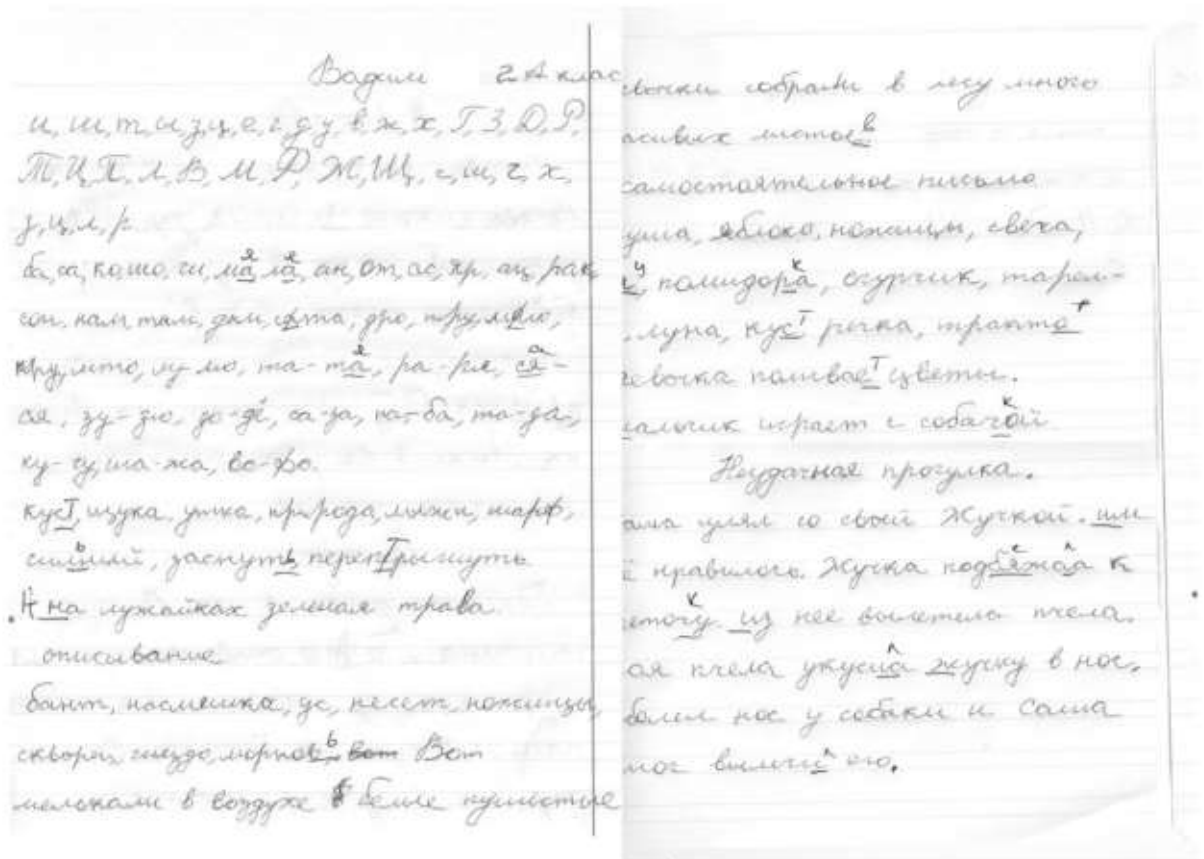 Вадим 2 А клас
и, ш, т, и, з, ц, е, г, д, у, в, ж, х, Г, З, Д, Р,
Т, Ц, П, Л, В, М, Ф, Ж, Щ, г, ш, г, х,
з, ц, л, р
ба, са, ко, шо, ги, ма, ла, ан, от, ас, яр, ац, рак,
сон, нам, там, дом, дро, тру,
кру, мто, лу-лю, та-та, ра-ря, ся-
ся, зу-зю, до-дё, са-за, па-ба, та-да,
ку-гу, ша-жа, во-фо.
кус, щука, утка, природа, лыжи, шарф,
заснуть
на лужайках зеленая трава
описывание
бант, насмешка, ус, несет, ножницы,
скворец, гнездо, морков Вот
мелькали в воздухе белые пушистые
евочки собрали в лесу много
расивых листое
самостоятельное письмо
уша, яблоко, ножницы, свеха,
помидора, огурчик, тарел-
луна, кус речка, тракто
девочка поливае цветы.
альчик играет с собачой
Неудачная прогулка.
аша гулял со свой Жучкой. им
нравилого. Жучка подбяжаа к
из нее вылетела пчела.
ая пчела укусиа жучку в нос.
болел нос у собаки и Саша
мог ого.